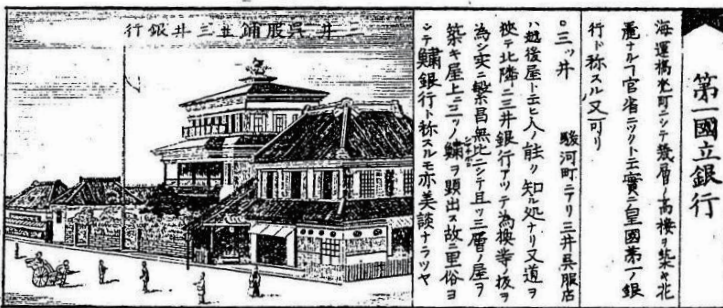 第一國立銀行
海運橋兜町ニシテ幾層ノ高樓ヲ築キ壯
麗ナルヿ官省ニツクト云實ニ皇國第一ノ銀
行ト称スル又可リ
○三ッ井 駿河町ニアリ三井呉服店
ハ越後屋ト云ヒ人ノ能ク知ル処ナリ又道ヲ
狹テ北隣ニ三井銀行アツテ為換等ノ扱ヲ
為シ実ニ繁昌無比ニシテ且ツ三層ノ屋ヲ
築キ屋上ニ三ツノ鯱ヲ顕出ス故ニ里俗ヨ
シテ鯱銀行ト称スルモ亦美談ナラツヤ
三井呉服鋪並三井銀行